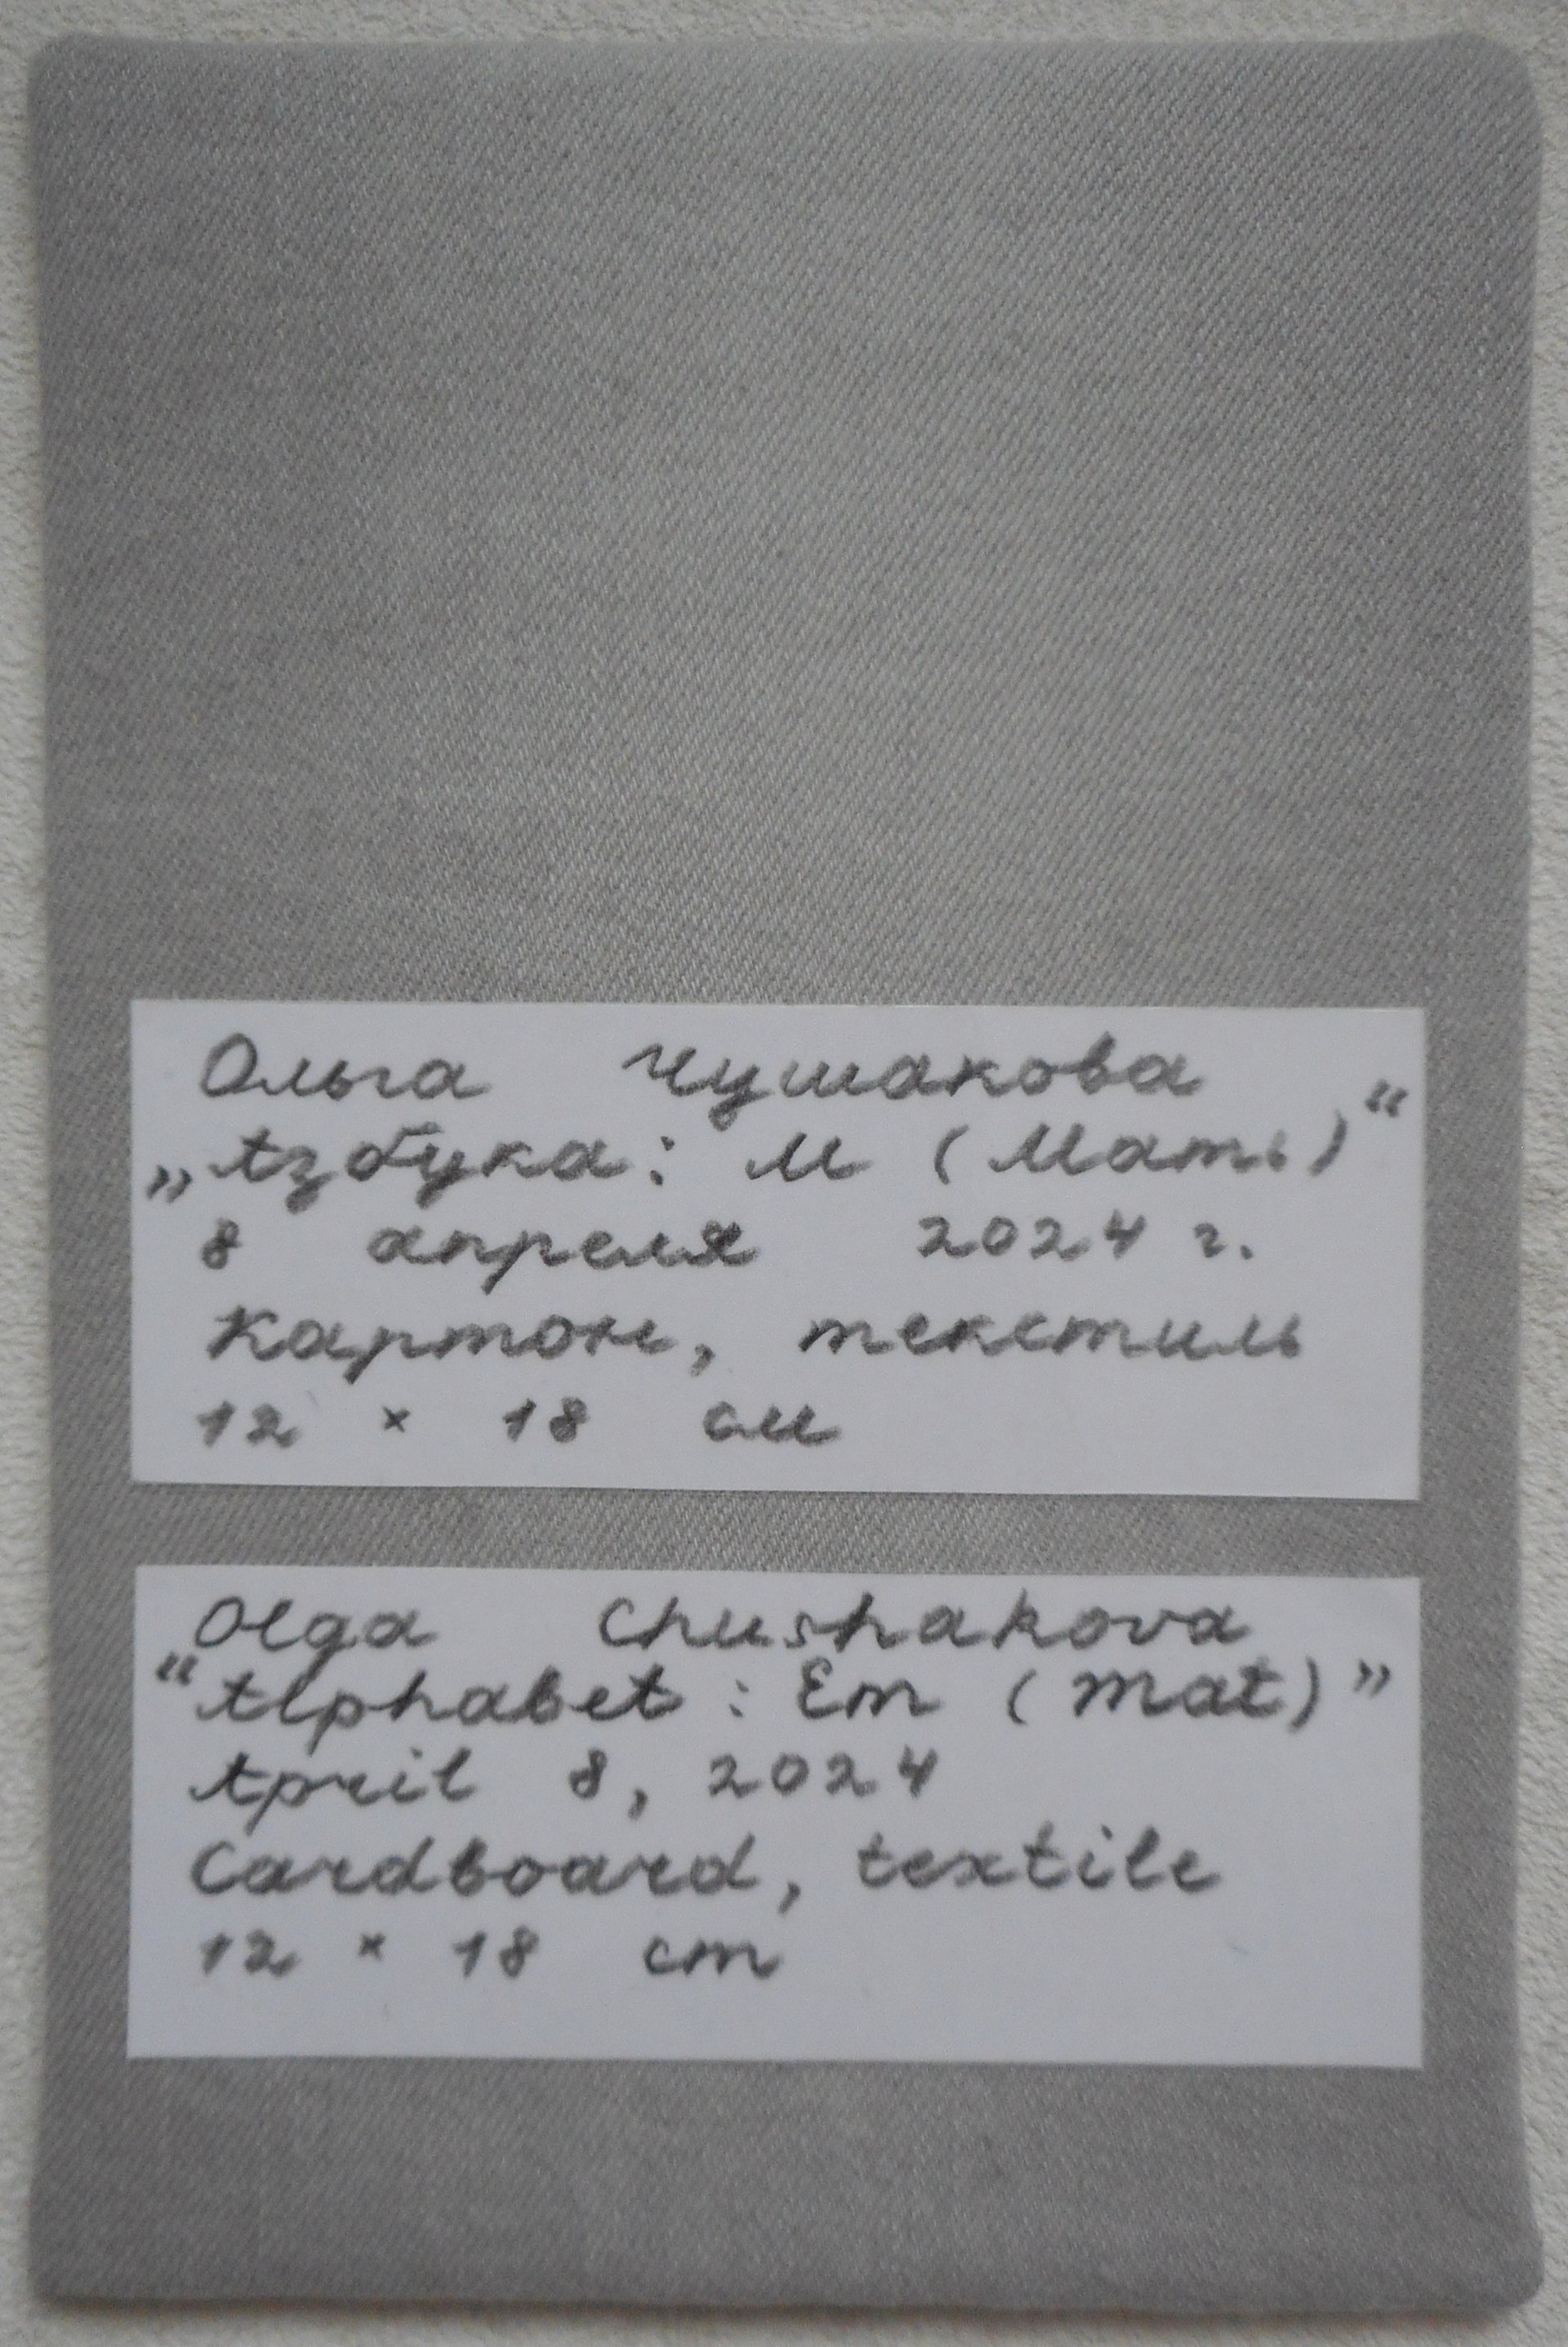 Ольга Чушакова
„Азбука: М (Мать)“
8 апреля 2024 г.
Картон, текстиль
12 × 18 см
Olga Chushakova
“Alphabet: Em (Mat)”
April 8, 2024
Cardboard, textile
12 × 18 cm